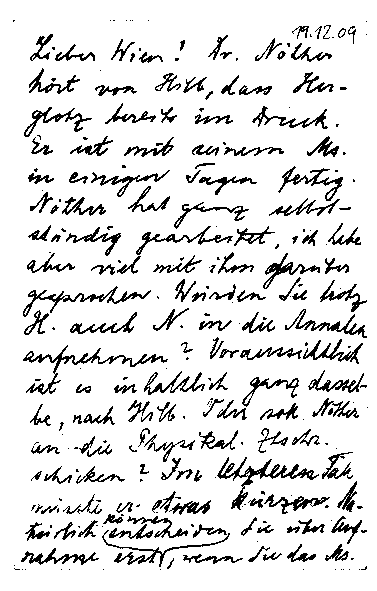 19.12.09
Lieber Wien! Dr. Nöther
hört von Hilb, dass Her-
glotz bereits im Druck.
Er ist mit seinem Ms.
in einigen Tagen fertig.
Nöther hat ganz selbst-
ständig gearbeitet, ich habe
aber viel mit ihm darüber
gesprochen. Würden Sie trotz
H. auch N. in die Annalen
aufnehmen? Voraussichtlich
ist es inhaltlich ganz dassel-
be, nach Hilb. Oder soll Nöther
an die Physikal. Ztschr.
schicken? Im letzteren Fall
müsste er etwas kürzen. Na-
türlich können entscheiden Sie über Auf-
nahme erst, wenn Sie das Ms.